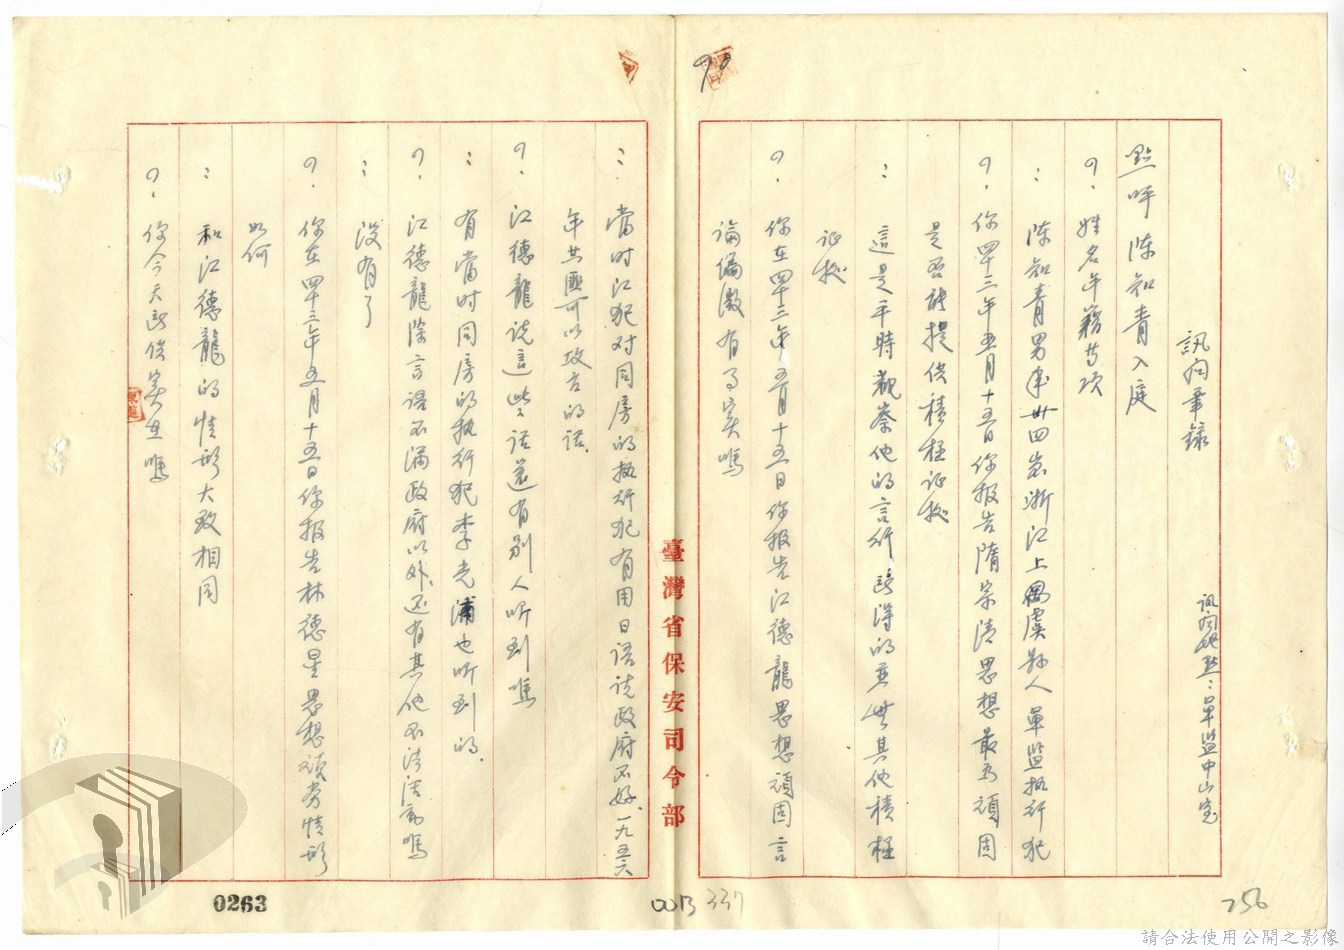 訊問筆錄
訊問地點：軍監中山室
點呼陈知青入庭
問．姓名年籍等項
：陈知青男年卅四岁浙江上虞县人軍监执行犯
問．你四十三年五月十五日你报告隋宗清思想最为頑固
是否能提供積極证據
：這是平時觀察他的言行所得的並無其他積極
证據
問．你在四十三年五月十五日你报告江德龍思想頑固言
論偏激有了實嗎
：當时江犯对同房的执行犯有用日语说政府不好、一九五六
年共匪可以攻台的话.
問．江德龍说這些话還有别人听到嗎
：有當时同房的执行犯李光浦也听到的.
問．江德龍除言语不满政府以外、还有其他不法活動嗎
：没有了
問．你在四十三年五月十五日你报告林德星思想頑劣情形
如何
：和江德龍的情形大致相同
問．你今天所供實在嗎
臺灣省保安司令部
0263
0013
337
256
請合法使用公開之影像